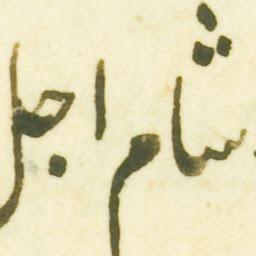 شام اجل